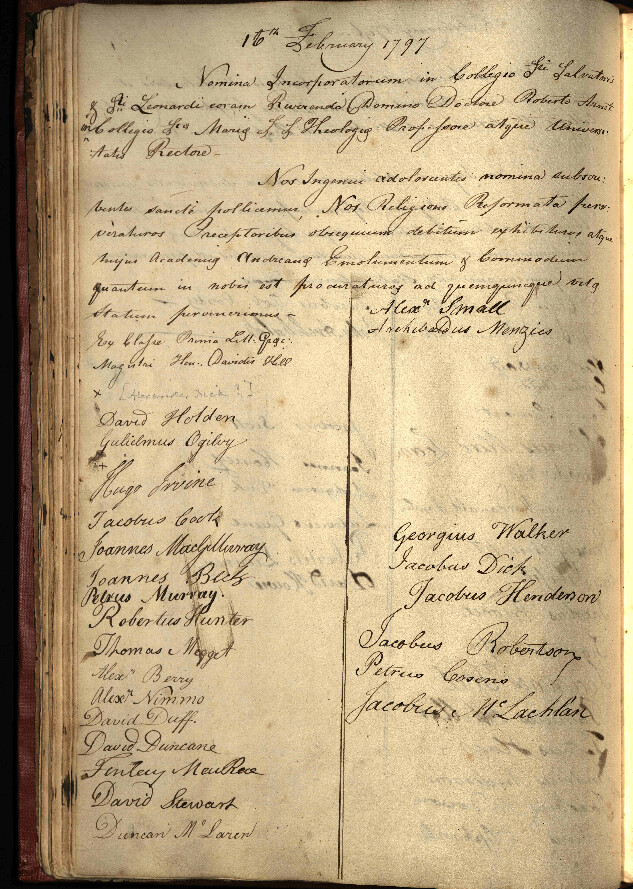 16th February 1797
Nomina Incorporatorum in Collegio Sti Salvatoris
& Sti Leonardi coram Reverendo Domino Doctore Roberto Arnot
in Collegio Stæ Mariæ S. S. Theologiæ Professore atque Universi-
tatis Rectore –
Nos Ingenui adolescentes nomina subscri-
bentes sancte pollicemur Nos Religione Reformata perse-
veraturos Preceptoribus obsequium debitum exhibituros atque
hujus Academiæ Andreanæ Emolumentum & Commodum
quantum in nobis est procuraturos ad quemcunque vitæ
statum pervenerimus –
Ex Classe Prima Litt. Græc:
Magistri Hen: Davidis Hill
x [Alexander Dick ?]
David Holden
Gulielmus Ogilvy
Hugo Irvine
Jacobus Cook
Joannes MacGillivray
Joannes Bell
Petrus Murray.
Robertus Hunter
Thomas Megget
Alexr Berry
Alexr Nimmo
David Duff.
David Duncane
Finlay MacRae
David Stewart
Duncan McLaren
Alexr Small
Archibaldus Menzies
Georgius Walker
Jacobus Dick
Jacobus Henderson
Jacobus Robertson
Petrus Cosens
Jacobus McLachlan